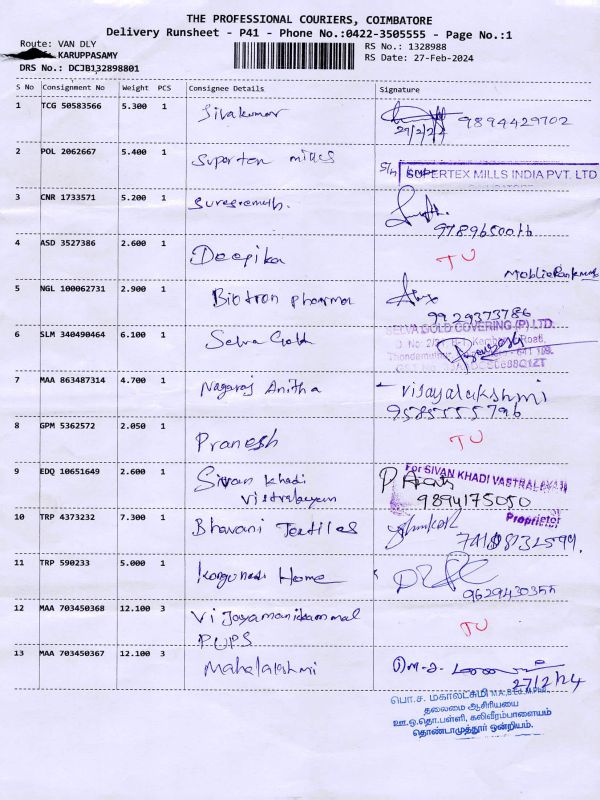 THE PROFESSIONAL COURIERS, COIMBATORE
Delivery Runsheet - P41 - Phone No.:0422-3505555 - Page No.:1
Route: VAN DLY
KARUPPASAMY
DRS No.: DCJB132898801
RS No.: 1328988
RS Date: 27-Feb-2024
S No Consignment No Weight PCS Consignee Details Signature
1 TCG 50583566 5.300 1 Sivakumar
27/2/24 9894429702
2 POL 2062667 5.400 1 Suportex mills
SUPERTEX MILLS INDIA PVT. LTD
3 CNR 1733571 5.200 1
4 ASD 3527386 2.600 1 Deepika TU
5 NGL 100062731 2.900 1 Biotron pharma
9929373786
6 SLM 340490464 6.100 1 Selva Gold
SELVA GOLD COVERING (P) LTD.
7 MAA 863487314 4.700 1 Nagaraj Anitha Vijayalakshmi
9585555796
8 GPM 5362572 2.050 1 Pranesh TU
9 EDQ 10651649 2.600 1 Sivan khadi
Vistralayam
For SIVAN KHADI VASTRALAYAM
9894175050
Proprietor
10 TRP 4373232 7.300 1 Bhavani Textiles
11 TRP 590233 5.000 1 Kongunadi Home
9629430355
12 MAA 703450368 12.100 3 Vijayamanickammal TU
PUPS
13 MAA 703450367 12.100 3 Mahalakshmi
27/2/24
பொ.ச. மகாலட்சுமி
தலைமை ஆசிரியை
ஊ.ஒ.தொ.பள்ளி, கலிவீரம்பாளையம்
தொண்டாமுத்தூர் ஒன்றியம்.